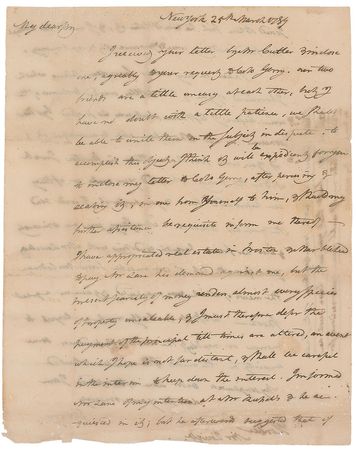 New York 25th March 1789
My dear Sir
I received your letter by Mr Cutler & inclose
one, agreeably to your request, to Colo Gerry. our two
friends are a little uneasy at each other, but I
have no doubt with a little patience, we shall
be able to unite them on the subject in dispute. to
accomplish this I think it will be expedient for you
to inclose my letter to Colo Gerry, after perusing &
sealing it, in one from yourself to him, & should my
further assistance be requisite inform me thereof
I have appropriated real estate in Boston & Marblehead
to pay Mr Lane his demand against me, but the
present scarcity of money renders almost every species
of property unsaleable, & I must therefore defer the
payment of the principal till times are altered, an event
which I hope is not far distant, & shall be careful
in the interim to keep down the interest. I informed
Mr Lane of my intention at Mr and he ac-
quiesced in it; but he afterwards suggested that if